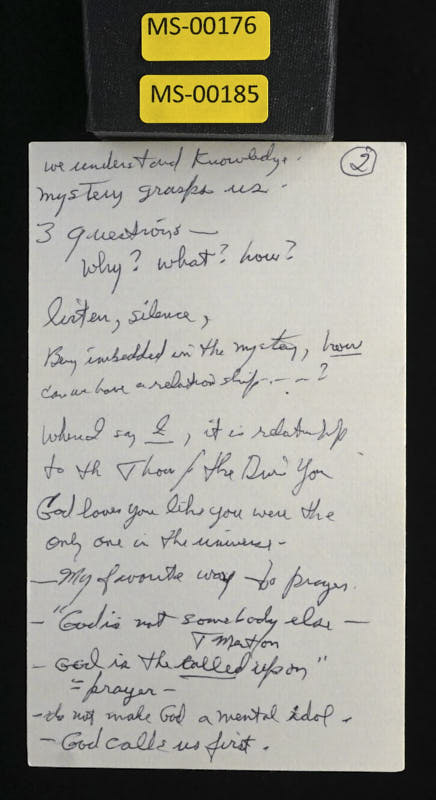 MS-00176
MS-00185
2
we understand knowledge.
mystery grasps us.
3 questions —
Why? what? how?
listen, silence,
Being imbedded in the mystery, how
can we have a relationship - - - ?
When I say I, it is relationship
to the Thou / the Divi You
God loves you like you were the
only one in the universe -
— My favorite way to prayer.
- "God is not somebody else —
T Merton
- God is the called upon"
= prayer -
- do not make God a mental idol.
- God calls us first.